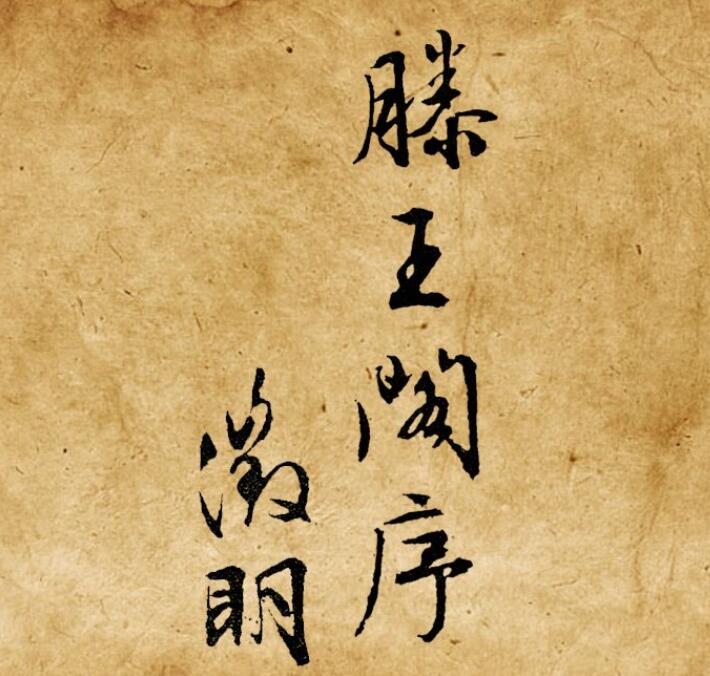 滕王閣序
徵明